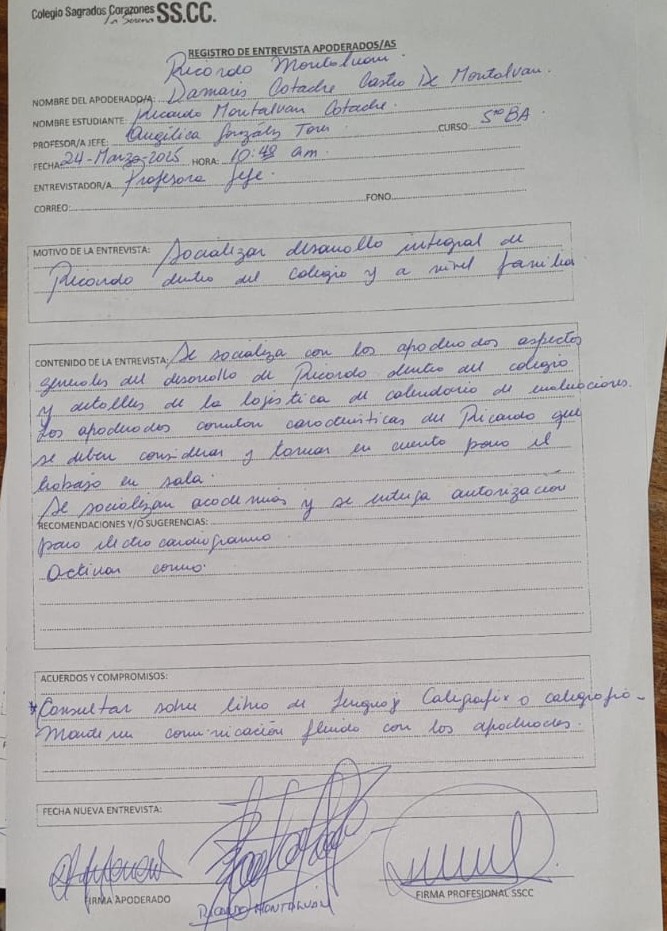 Colegio Sagrados Corazones SS.CC.
La Serena
REGISTRO DE ENTREVISTA APODERADOS/AS
Ricardo Montalvan
NOMBRE DEL APODERADO/A: Damaris Cotache Castro De Montalvan.
NOMBRE ESTUDIANTE: Ricardo Montalvan Cotache.
PROFESOR/A JEFE: Angélica González Toro CURSO: 5º BA
FECHA: 24-Marzo-2025 HORA: 10:40 am
ENTREVISTADOR/A Profesora Jefe.
CORREO: FONO
MOTIVO DE LA ENTREVISTA: Socializar desarrollo integral de
Ricardo dentro del colegio y a nivel familia
CONTENIDO DE LA ENTREVISTA: Se socializa con los apoderados aspectos
generales del desarrollo de Ricardo dentro del colegio
y detalles de la logística de calendario de evaluaciones.
Los apoderados comentan características de Ricardo que
se deben considerar y tomar en cuenta para el
trabajo en sala.
Se socializan academias y se entrega autorización
RECOMENDACIONES Y/O SUGERENCIAS:
para electro cardiograma
Activar correo.
ACUERDOS Y COMPROMISOS:
*Consultar sobre libro de lenguaje Caligrafix o caligrafía-
Mantener comunicación fluida con los apoderados.
FECHA NUEVA ENTREVISTA:
FIRMA APODERADO
RICARDO MONTALVAN
FIRMA PROFESIONAL SSCC